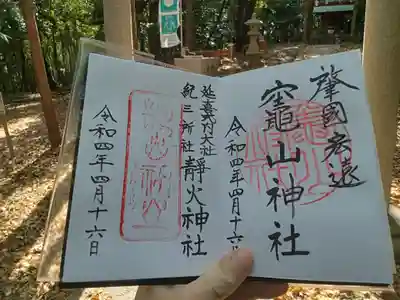 肇國宏遠
竈山神社
令和四年四月十六日
延喜式内大社
紀三所社
靜火神社
令和四年四月十六日